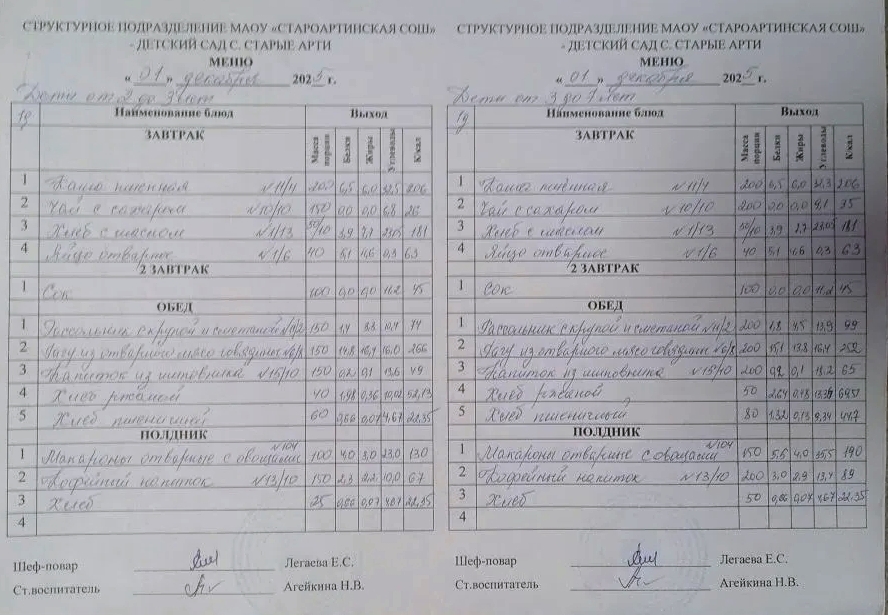 СТРУКТУРНОЕ ПОДРАЗДЕЛЕНИЕ МАОУ «СТАРОАРТИНСКАЯ СОШ»
- ДЕТСКИЙ САД С. СТАРЫЕ АРТИ
МЕНЮ
« 01 » декабря 2025 г.
Дети от 2 до 3 лет
1д Наименование блюд Выход
ЗАВТРАК Масса порции Белки Жиры Углеводы К/кал
1 Каша пшенная №11/4 200 6,5 6,0 32,5 206
2 Чай с сахаром №10/10 150 0,0 0,0 6,8 26
3 Хлеб с маслом №1/13 50/10 3,9 7,7 23,05 181
4 Яйцо отварное №1/6 40 5,1 4,6 0,3 63
2 ЗАВТРАК
1 Сок 100 0,0 0,0 11,2 45
ОБЕД
1 Рассольник с крупой и сметаной 150 74
2 Рагу из отварного мясо говядины №6/8 150 14,8 16,4 16,0 266
3 Напиток из шиповника №15/10 150 0,2 0,1 49
4 Хлеб ржаной 40 1,98 0,36 10,02 52,13
5 Хлеб пшеничный 60 0,66 0,07 4,67 22,35
ПОЛДНИК
1 Макароны отварные с овощами №104 100 4,0 3,0 23,0 130
2 Кофейный напиток №13/10 150 2,3 2,2 10,0 67
3 Хлеб 25 0,66 0,07 4,67 22,35
4
Шеф-повар Легаева Е.С.
Ст.воспитатель Агейкина Н.В.
СТРУКТУРНОЕ ПОДРАЗДЕЛЕНИЕ МАОУ «СТАРОАРТИНСКАЯ СОШ»
- ДЕТСКИЙ САД С. СТАРЫЕ АРТИ
МЕНЮ
« 01 » декабря 2025 г.
Дети от 3 до 7 лет
1д Наименование блюд Выход
ЗАВТРАК Масса порции Белки Жиры Углеводы К/кал
1 Каша пшенная №11/4 200 6,5 6,0 32,3 206
2 Чай с сахаром №10/10 200 0,0 0,0 9,1 35
3 Хлеб с маслом №1/13 50/10 3,9 7,7 23,05 181
4 Яйцо отварное №1/6 40 5,1 4,6 0,3 63
2 ЗАВТРАК
1 Сок 100 0,0 0,0 11,2 45
ОБЕД
1 Рассольник с крупой и сметаной 200 1,8 4,5 13,9 99
2 Рагу из отварного мясо говядины №6/8 200 15,1 13,8 16,4 252
3 Напиток из шиповника №15/10 200 0,2 0,1 18,2 65
4 Хлеб ржаной 50 2,64 0,48
5 Хлеб пшеничный 80 1,32 0,13 9,34 44,7
ПОЛДНИК
1 Макароны отварные с овощами №104 150 5,6 4,0 35,5 190
2 Кофейный напиток №13/10 200 3,0 2,9 13,4 89
3 Хлеб 50 0,66 0,07 4,67 22,35
4
Шеф-повар Легаева Е.С.
Ст.воспитатель Агейкина Н.В.